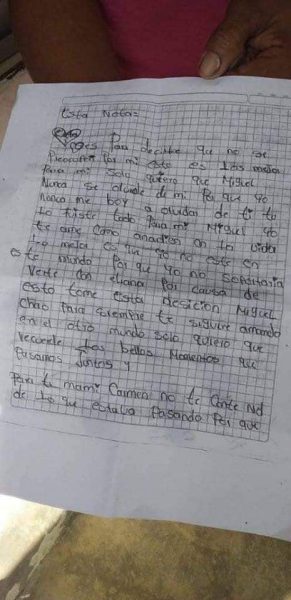 Esta Nota=
es Para decirte que no se
Preocupes Por mi esto es lo mejor
Para mi solo quiero que Miguel
Nunca se olvide de mi Por que yo
nunca me boy a olvidar de ti tu
lo fuiste todo Para mi Miguel yo
te ame como a nadien en la vida
lo mejor es que yo no este en
este mundo Por que yo no soportaria
verte con eliana Por causa de
esto tome esta desicion Miguel
chao Para siempre te seguire amando
en el otro mundo solo quiero que
recuerde los bellos Momentos que
Pasamos Juntos y
Para tu mami Carmen no te Conte Nd
de lo que estaba Pasando Por que